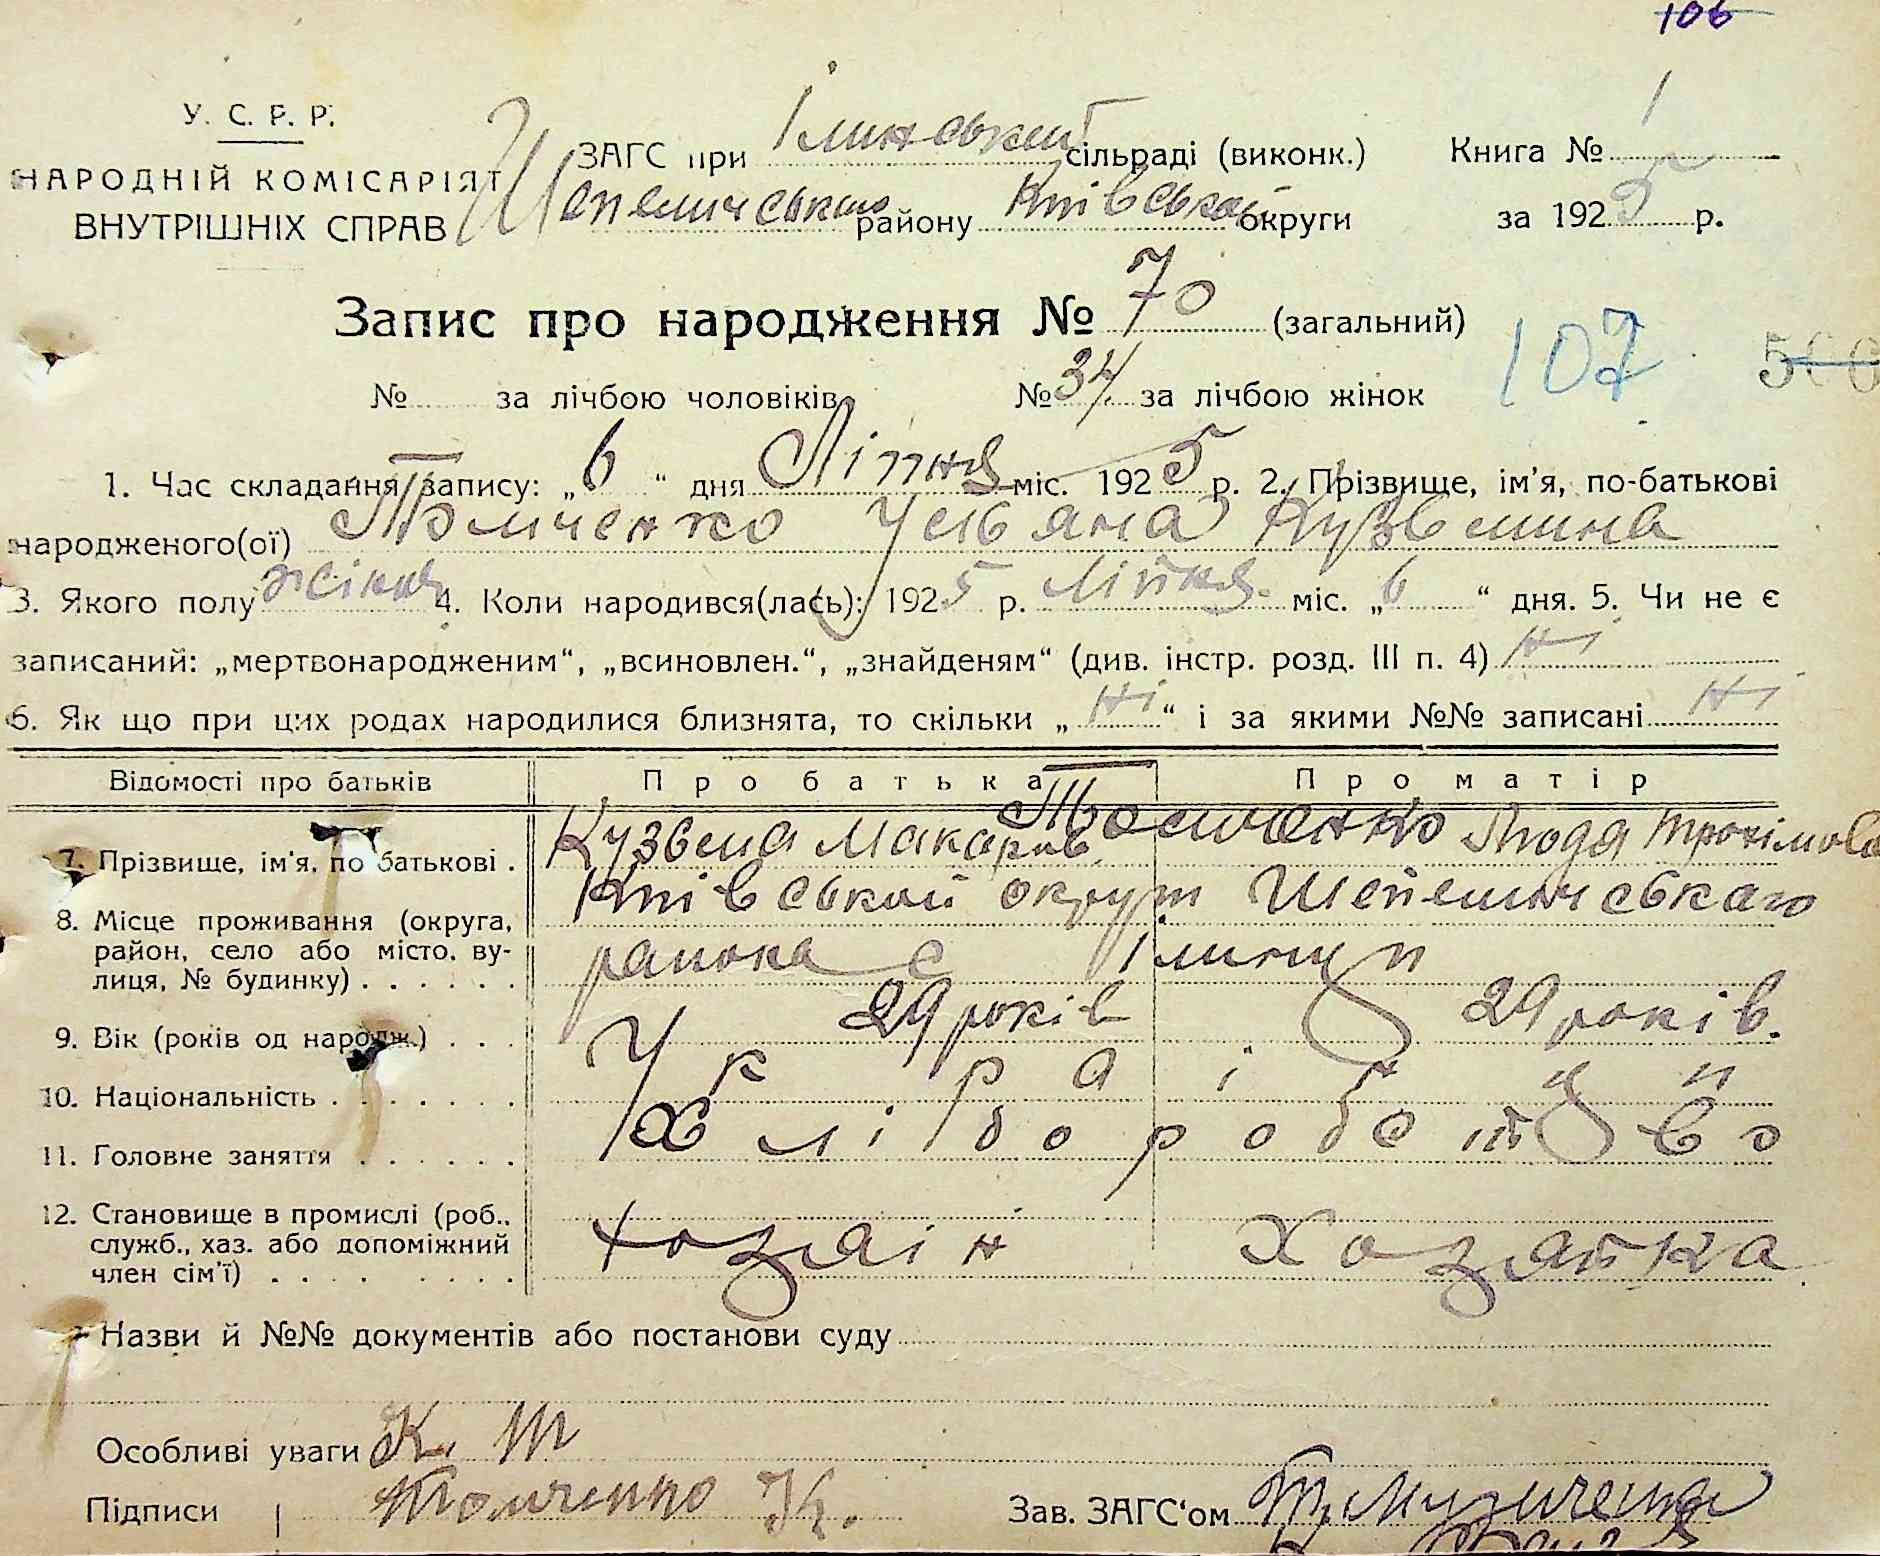 106
У. С. Р. Р.
НАРОДНІЙ КОМІСАРІЯТ
ВНУТРІШНІХ СПРАВ
ЗАГС при Ілинській сільраді (виконк.) Книга № 1
Шепеличського району Київської округи за 1925 р.
Запис про народження № 70 (загальний)
107
500
№ за лічбою чоловіків № 34 за лічбою жінок
1. Час складання запису: „6“ дня Ліпня міс. 1925 р. 2. Прізвище, ім’я, по-батькові
народженого(ої) Томченко Ульяна Кузьмина
3. Якого полу жіноч 4. Коли народився(лась): 1925 р. Ліпня міс. „6“ дня. 5. Чи не є
записаний: „мертвонародженим“, „всиновлен.“, „знайденям“ (див. інстр. розд. III п. 4) Ні
6. Як що при цих родах народилися близнята, то скільки „Ні“ і за якими №№ записані Ні
Відомості про батьків Про батька Про матір
7. Прізвище, ім’я, по батькові . Кузьма Макаров Томченко
8. Місце проживання (округа, район, село або місто, вулиця, № будинку) Київськой округи Шепеличськаго
района с Ілинци
9. Вік (років од народж.) 29 років 29 років.
10. Національність Українци
11. Головне заняття Хліборобство
12. Становище в промислі (роб., служб., хаз. або допоміжний член сім’ї) Хозяін Хозяйка
Назви й №№ документів або постанови суду
Особливі уваги К. Т
Підписи Томченко К. Зав. ЗАГС‘ом